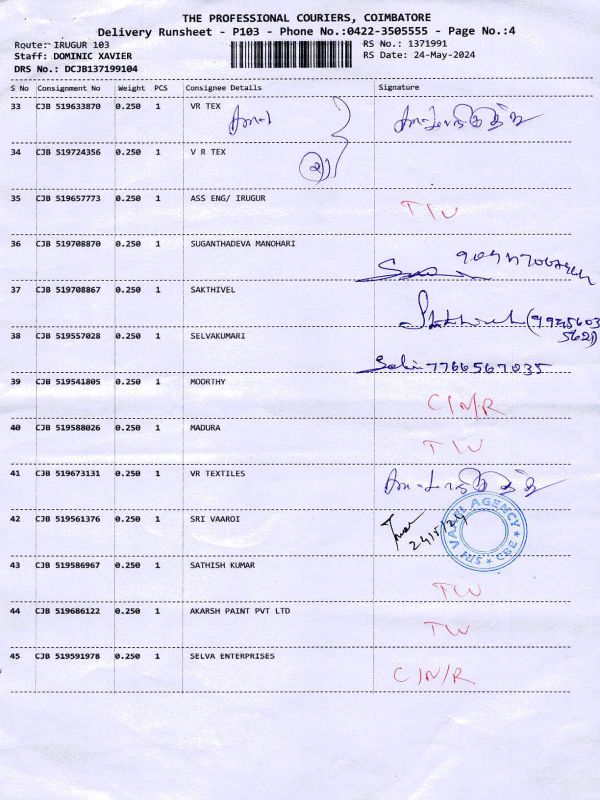 THE PROFESSIONAL COURIERS, COIMBATORE
Delivery Runsheet - P103 - Phone No.:0422-3505555 - Page No.:4
Route: IRUGUR 103
RS No.: 1371991
Staff: DOMINIC XAVIER
RS Date: 24-May-2024
DRS No.: DCJB137199104
S No Consignment No Weight PCS Consignee Details Signature
33 CJB 519633870 0.250 1 VR TEX
34 CJB 519724356 0.250 1 V R TEX
35 CJB 519657773 0.250 1 ASS ENG/ IRUGUR
36 CJB 519708870 0.250 1 SUGANTHADEVA MANOHARI
37 CJB 519708867 0.250 1 SAKTHIVEL
38 CJB 519557028 0.250 1 SELVAKUMARI
7766567035
39 CJB 519541805 0.250 1 MOORTHY C/N/R
40 CJB 519588026 0.250 1 MADURA
41 CJB 519673131 0.250 1 VR TEXTILES
42 CJB 519561376 0.250 1 SRI VAARDI 24/5/24
SRI VAARDI AGENCY ★ CBE ★
43 CJB 519586967 0.250 1 SATHISH KUMAR
44 CJB 519686122 0.250 1 AKARSH PAINT PVT LTD
45 CJB 519591978 0.250 1 SELVA ENTERPRISES C/N/R